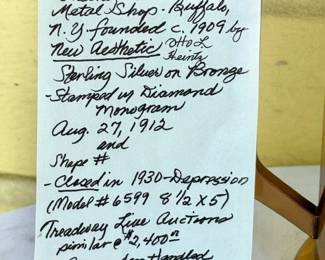 Metal Shop - Buffalo,
N.Y. founded c. 1909 by
New Aesthetic Otto L
Heintz
Sterling Silver on Bronze
- Stamped in Diamond
Monogram
Aug. 27, 1912
and
Shop #
- Closed in 1930 - Depression
(Model # 6599 8 1/2 X 5)
Treadway Live Auctions
similar @ $2,400
Handled